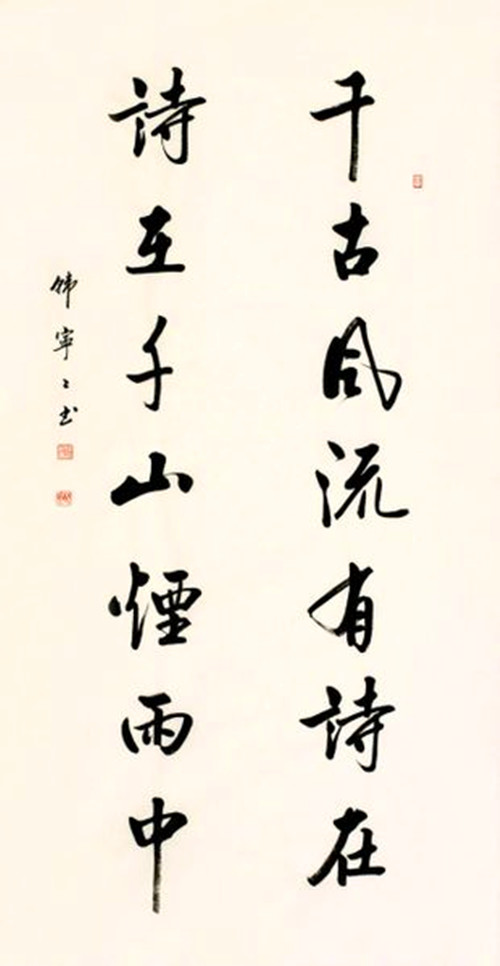 千古風流有詩在
詩在千山煙雨中
韩寧〻书